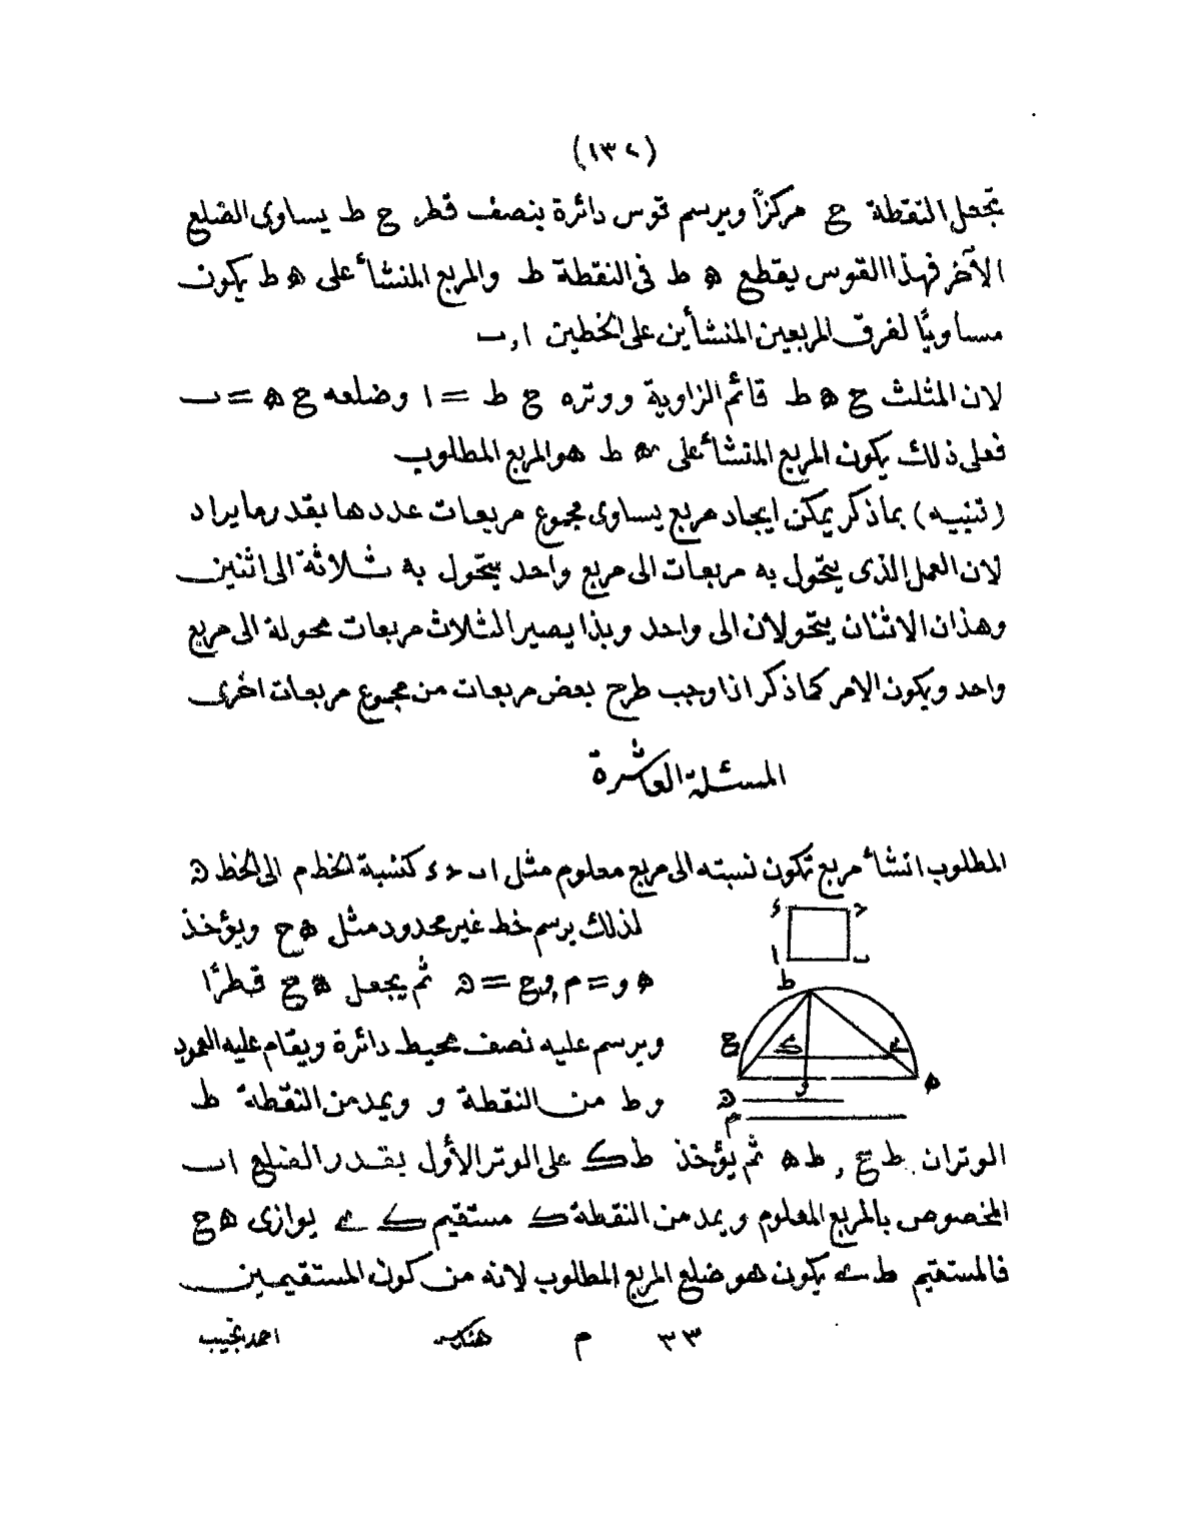 (١٣٢)
تجعل النقطة ح مركزًا ويرسم قوس دائرة بنصف قطر ح ط يساوى الضلع
الآخر فهذا القوس يقطع ه ط فى النقطة ط والمربع المنشأ على ه ط يكون
مساويًا لفرق المربعين المنشأين على الخطين ا , ب
لان المثلث ح ه ط قائم الزاوية ووتره ح ط = ا وضلعه ح ه = ب
فعلى ذلك يكون المربع المنشأ على ه ط هو المربع المطلوب
(تنبيه) بما ذكر يمكن ايجاد مربع يساوى مجموع مربعات عددها بقدر ما يراد
لان العمل الذى يتحول به مربعات الى مربع واحد يتحول به ثلاثة الى اثنين
وهذان الاثنان يتحولان الى واحد وبذا يصير الثلاث مربعات محولة الى مربع
واحد ويكون الامر كما ذكر اذا وجب طرح بعض مربعات من مجموع مربعات اخرى
المسئلة العاشرة
المطلوب انشأ مربع تكون نسبته الى مربع معلوم مثل ا ب د ء كنسبة الخط م الى الخط ن
ء د
لذلك يرسم خط غير محدود مثل ه ح ويؤخذ
ا ب
ط
ه و = م , و ح = ن ثم يجعل ه ح قطرًا
ويرسم عليه نصف محيط دائرة ويقام عليه العمود
ح ك ے
ه
و ط من النقطة و ويمد من النقطة ط
و
ن
م
الوتران ط ح , ط ه ثم يؤخذ ط ك على الوتر الأول بقدر الضلع ا ب
المخصوص بالمربع المعلوم ويمد من النقطة ك مستقيم ك ے يوازى ه ح
فالمستقيم ط ے يكون هو ضلع المربع المطلوب لانه من كون المستقيمين
٣٣ م هندسه احمد نجيب